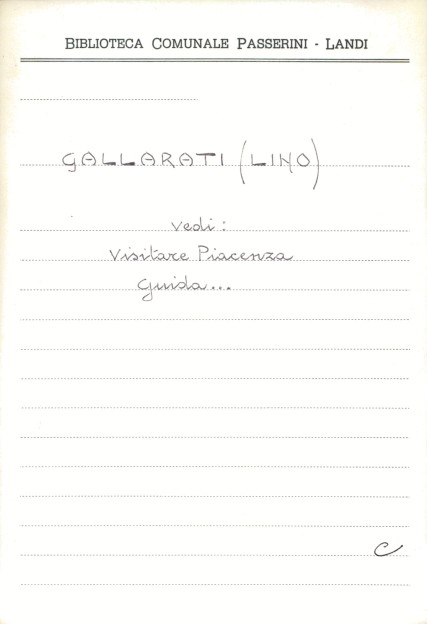 BIBLIOTECA COMUNALE PASSERINI - LANDI
GALLARATI (LINO)
vedi:
Visitare Piacenza
Guida...
C